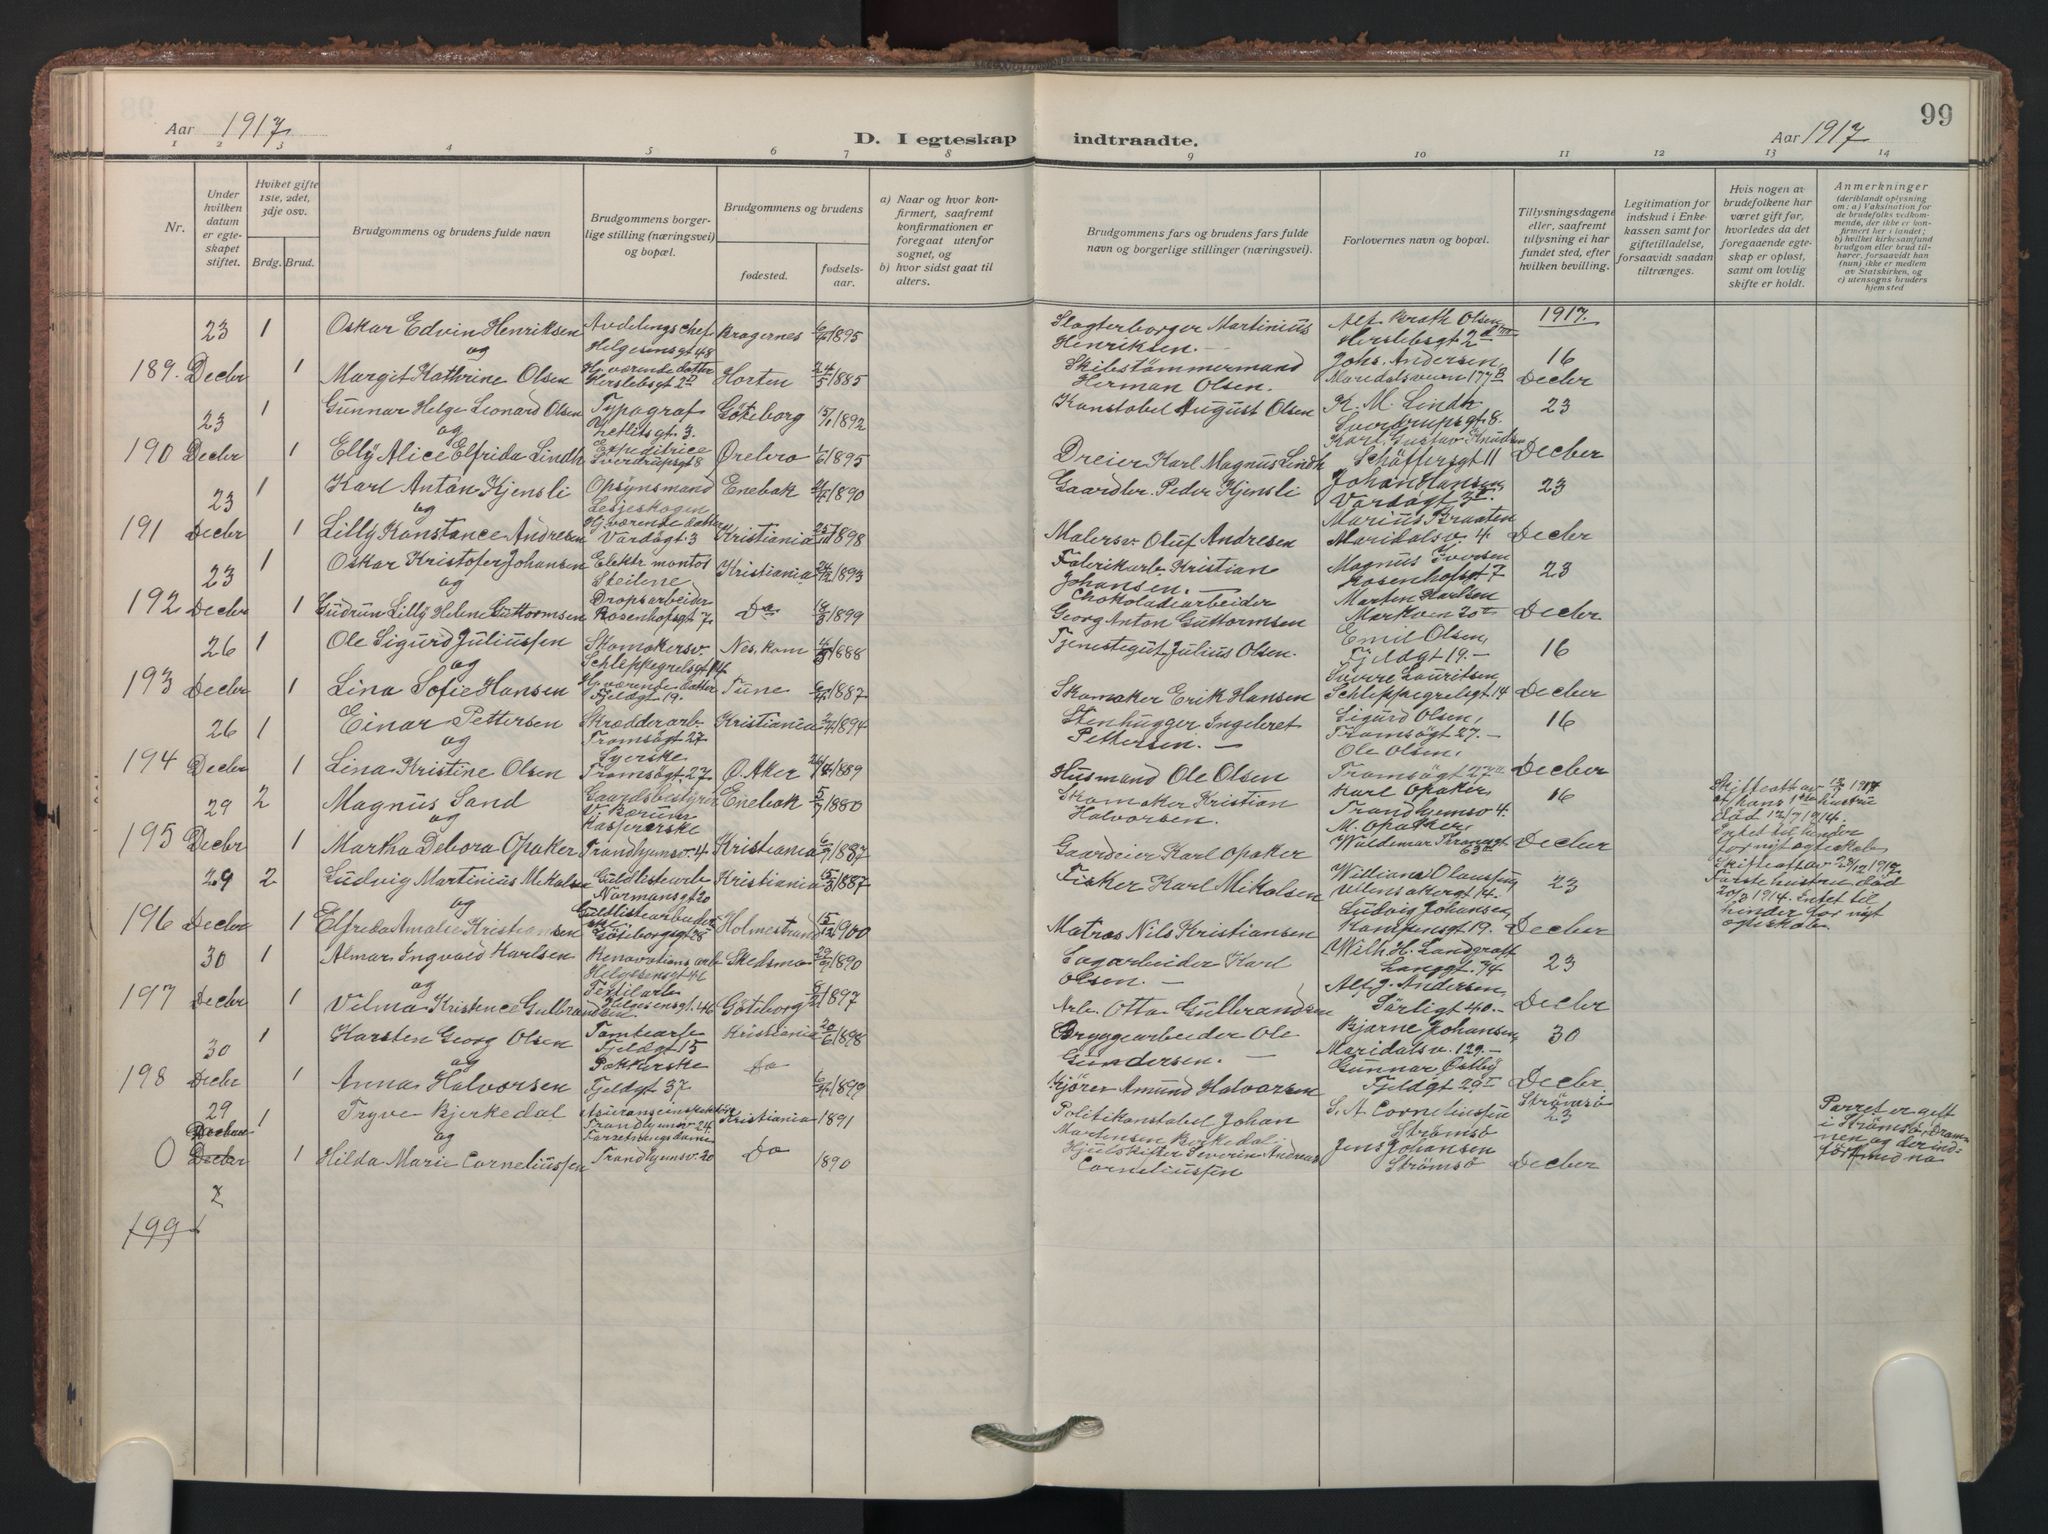 99
Aar 1917
D. I egteskap indtraadte.
Aar 1917
1 2 3 4 5 6 7 8 9 10 11 12 13 14
Nr.
Under hvilken datum er egteskapet stiftet.
Hvilket gifte 1ste, 2det, 3dje osv.
Brdg. Brud.
Brudgommens og brudens fulde navn
Brudgommens borgerlige stilling (næringsvei) og bopæl.
Brudgommens og brudens
fødested.
fødselsaar.
a) Naar og hvor konfirmert, saafremt konfirmationen er foregaat utenfor sognet, og
b) hvor sidst gaat til alters.
Brudgommens fars og brudens fars fulde navn og borgerlige stillinger (næringsvei).
Forlovernes navn og bopæl.
Tillysningsdagene eller, saafremt tillysning ei har fundet sted, efter hvilken bevilling.
Legitimation for indskud i Enkekassen samt for giftetilladelse, forsaavidt saadan tiltrænges.
Hvis nogen av brudefolkene har været gift før, hvorledes da det foregaaende egteskap er opløst, samt om lovlig skifte er holdt.
Anmerkninger (deriblandt oplysning om: a) Vaksination for de brudefolks vedkommende, der ikke er konfirmert her i landet; b) hvilket kirkesamfund brudgom eller brud tilhører, forsaavidt han (hun) ikke er medlem av Statskirken, og c) utensogns bruders hjemsted
1917.
189. 23 Decbr 1 Oskar Edvin Henriksen Avdelingschef Helgesensgt 48 Bragernes 1895 Slagterborger Martinius Henriksen.— Alf Brath Olsen Herslebsgt 2
og
1 Margit Kathrine Olsen Hj. værende datter Herslebsgt 2 Horten 24/5 1885 Skibstömmermand Herman Olsen. Johs. Andersen, Maridalsveien 177 B 16 Decbr
190 23 Decbr 1 Gunnar Helge Leonard Olsen Typograf Göteborg 1892 Konstabel August Olsen K. M. Lindh Sverdrupsgt. 8. 23
og
1 Elly Alice Elfrida Lindh Expeditrice Sverdrupsgt 8 Örebro 1895 Dreier Karl Magnus Lindh Karl Gustav Knudsen Schäffersgt 11 Decber
191 23 Decbr 1 Karl Anton Kjensli Opsynsmand Enebak 1890 Gaardbr. Peder Kjensli Johan Hansen, Vardøgt 3 23
og
1 Lilly Konstance Andresen Hj. værende datter Vardøgt 3 Kristiania 1898 Malersv. Oluf Andresen Marius Braaten Maridalsv. 4 Decbr
192 23 Decbr 1 Oskar Kristofer Johansen Elektr. montör Steilene Kristiania 1893 Fabrikarb. Kristian Johansen.— Magnus Iversen Rosenhofsgt 7 23
og
1 Gudrun Lilly Helene Guttormsen Dropsarbeider Rosenhofsgt 7 Do 1899 Chokoladearbeider Georg Anton Guttormsen Morten Karlsen Markven 20 Decbr
193 26 Decbr 1 Ole Sigurd Juliussen Skomakersv. Schleppegrelsgt 14 Nes, Rom 1888 Tjenestegut Julius Olsen. Emil Olsen, Fjeldgt 19.— 16
og
1 Lina Sofie Hansen Hj. værende datter Fjeldgt 19. Tune 1887 Skomaker Erik Hansen Sverre Lauritsen Schleppegrelsgt 14 Decber
194 26 Decbr 1 Einar Pettersen Skrædderarb. Tromsögt 27 Kristiania 1894 Stenhugger Ingebret Pettersen.— Sigurd Olsen, Tromsögt 27.— 16
og
1 Lina Kristine Olsen Syerske Tromsögt 27 Ö. Aker 1889 Husmand Ole Olsen Ole Olsen, Tromsögt 27 Decber
195 29 Decbr 2 Magnus Sand Gaardsbestyrer V. Bærum Enebak 5/7 1880 Skomaker Kristian Halvorsen. Karl Opaker, Trondhjemsv 4. 16
og
1 Martha Debora Opaker Kasserske Trondhjemsv. 4 Kristiania 1887 Gaardeier Karl Opaker M. Opaker, Decber
196 29 Decbr 2 Ludvig Martinius Mikalsen Guldlistearb Normansgt 20 Kristiania 1887 Fisker Karl Mikalsen William Olaussen, 23
og
1 Elfrida Amalie Kristiansen Guldlistearbeider Göteborgsgt 28 Holmestrand 15/12 1900 Matros Nils Kristiansen Ludvig Johansen, Kampensgt 19. Decber
197 30 Decbr 1 Almar Ingvald Karlsen Renovations arb Helgesensgt 46 Skedsmo 1890 Sagarbeider Karl Olsen.— Wilh. H. Landgraff Langgt. 34 23
og
1 Vilma Kristence Gulbrandsen Textilarb. Helgesensgt 46 Göteborg 1897 Arb. Otto Gulbrandsen Alf J. Andersen, Sörligt 40.— Decbr
198 30 Decbr 1 Karsten Georg Olsen Tomtearb Fjeldgt 15 Kristiania 20/6 1898 Bryggearbeider Ole Gundersen.— Bjarne Johansen, Maridalsv. 129.— 30
og
1 Anna Halvorsen Pakkerske Fjeldgt 37 Do 1899 Kjörer Amund Halvorsen Gunnar Östby Fjeldgt 29 I Decbr.
0 29 Decbr 1 Trygve Bjerkedal Assuranseinspektör Trondhjemsv. 24. Kristiania 1891 Politikonstabel Johan Martensen Birkedal. S. A. Corneliussen Strömsö Strömsö 23
og
1 Hilda Marie Corneliussen Forretningsdame Trondhjemsv. 20 Do 1890 Hjulskifter Severin Andreas Corneliussen Jens Johansen Strömsö Decber
199
Skifteatt av
at hans 1ste hustru
död 12/7 1914.
Intet til hinder
for nyt egteskab
Skifteatt av 23/12 1917
Förste hustru död
20/3 1914. Intet til
hinder for nyt
egteskab.
Parret er gift
i Strömsö, Drammen og der indfört med no